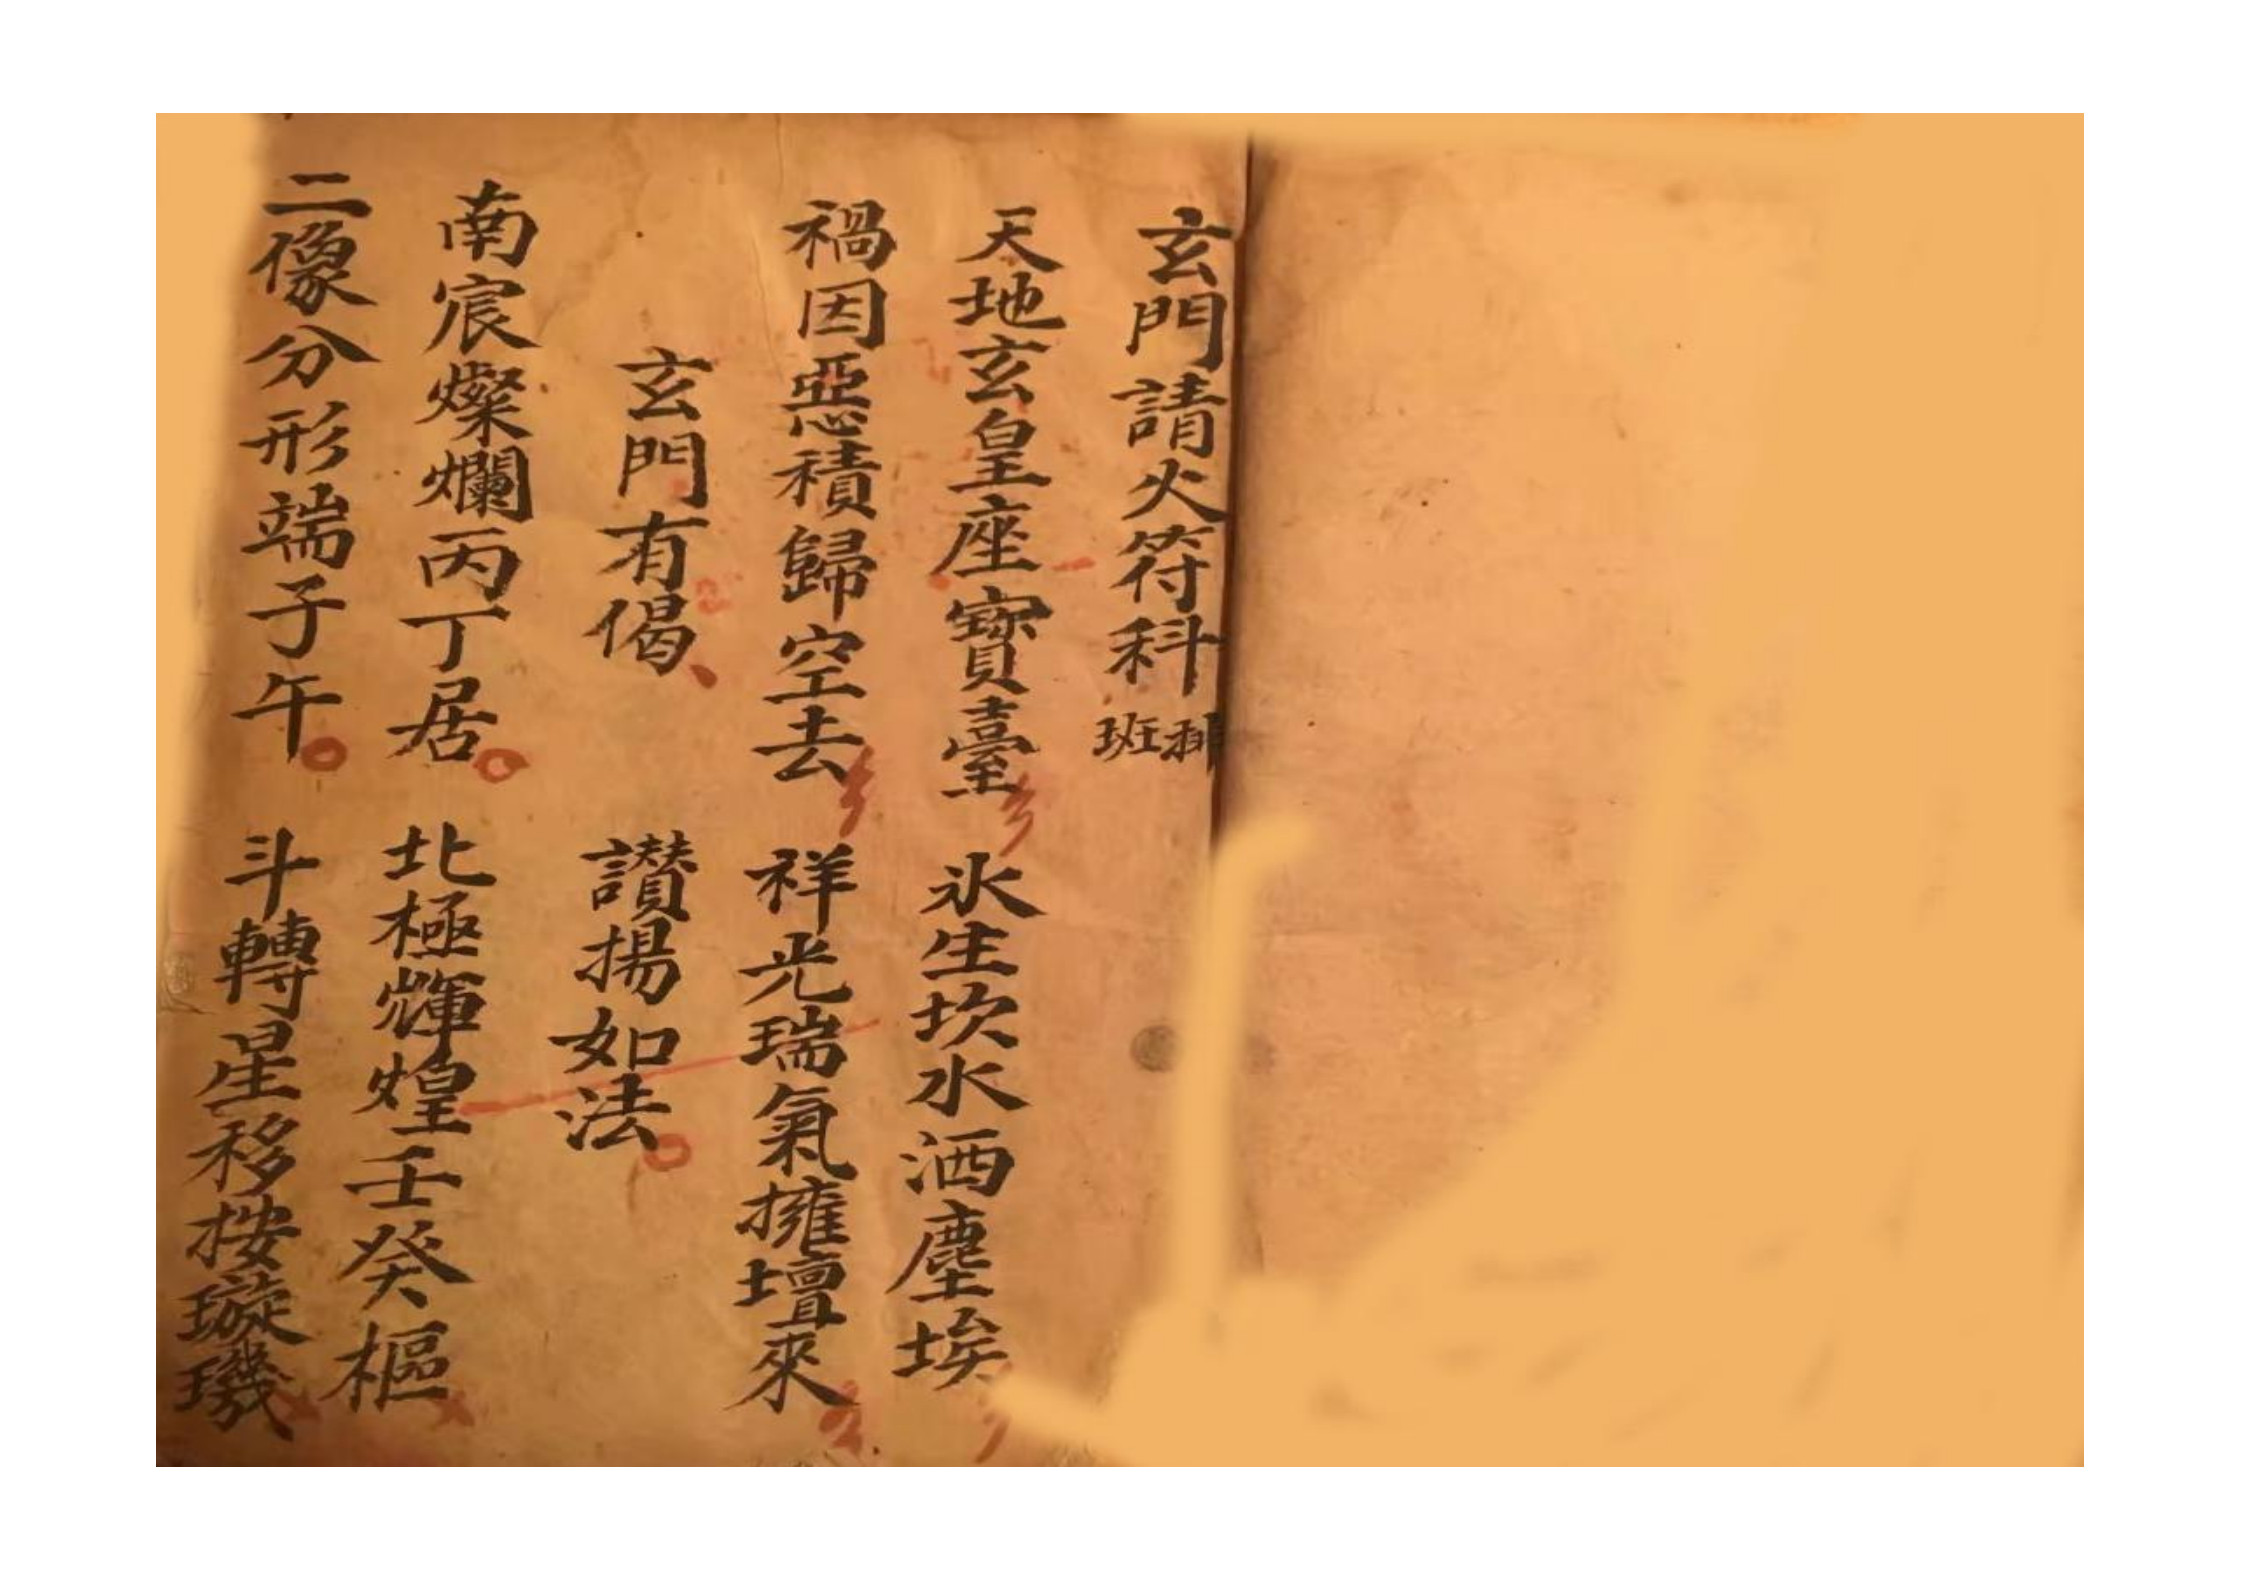 玄門請火符科 排班
天地玄皇座寶臺 氷生坎水洒塵埃
禍因惡積歸空去 祥光瑞氣擁壇來
玄門有偈、 讃揚如法
南宸燦爛丙丁居 北極輝煌壬癸樞
二像分形端子午 斗轉星移按璇璣